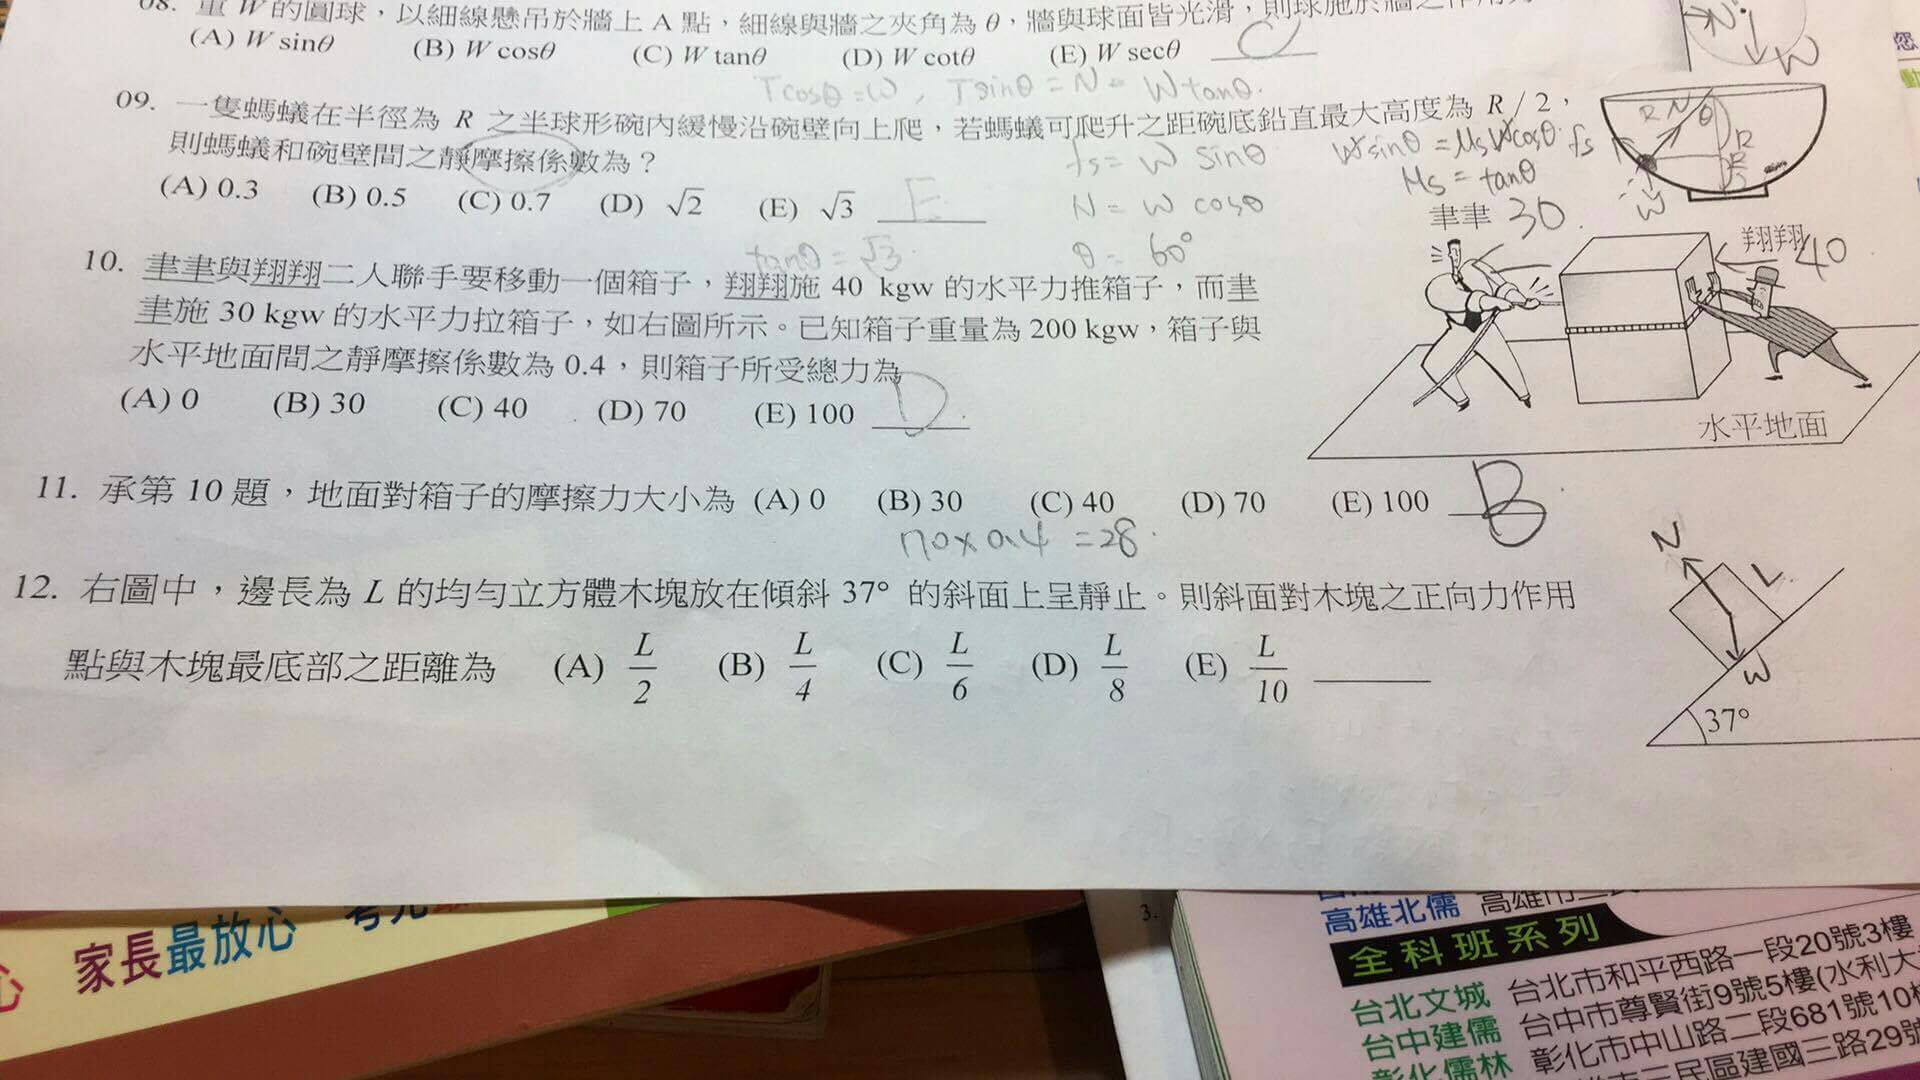 08. 重 W 的圓球，以細線懸吊於牆上 A 點，細線與牆之夾角為 θ，牆與球面皆光滑，則球施於牆之作用力
(A) W sinθ (B) W cosθ (C) W tanθ (D) W cotθ (E) W secθ C
N
W
Tcosθ=W, Tsinθ = N = Wtanθ.
09. 一隻螞蟻在半徑為 R 之半球形碗內緩慢沿碗壁向上爬，若螞蟻可爬升之距碗底鉛直最大高度為 R / 2，
則螞蟻和碗壁間之靜摩擦係數為？
(A) 0.3 (B) 0.5 (C) 0.7 (D) √2 (E) √3 E
fs = W sinθ
N = W cosθ
tanθ = √3 θ = 60°
Wsinθ = μsWcosθ
μs = tanθ
fs
R N θ
W
10. 聿聿與翔翔二人聯手要移動一個箱子，翔翔施 40 kgw 的水平力推箱子，而聿
聿施 30 kgw 的水平力拉箱子，如右圖所示。已知箱子重量為 200 kgw，箱子與
水平地面間之靜摩擦係數為 0.4，則箱子所受總力為
(A) 0 (B) 30 (C) 40 (D) 70 (E) 100 D
聿聿 30
翔翔 40
水平地面
11. 承第 10 題，地面對箱子的摩擦力大小為 (A) 0 (B) 30 (C) 40 (D) 70 (E) 100 B
70×0.4 =28
12. 右圖中，邊長為 L 的均勻立方體木塊放在傾斜 37° 的斜面上呈靜止。則斜面對木塊之正向力作用
點與木塊最底部之距離為 (A) L/2 (B) L/4 (C) L/6 (D) L/8 (E) L/10
N
L
W
37°
家長最放心
心
3.
高雄北儒
全科班系列
台北文城 台北市和平西路一段20號3樓
台中建儒 台中市尊賢街9號5樓(水利大
彰化儒林 彰化市中山路二段681號10樓
市三民區建國三路29號